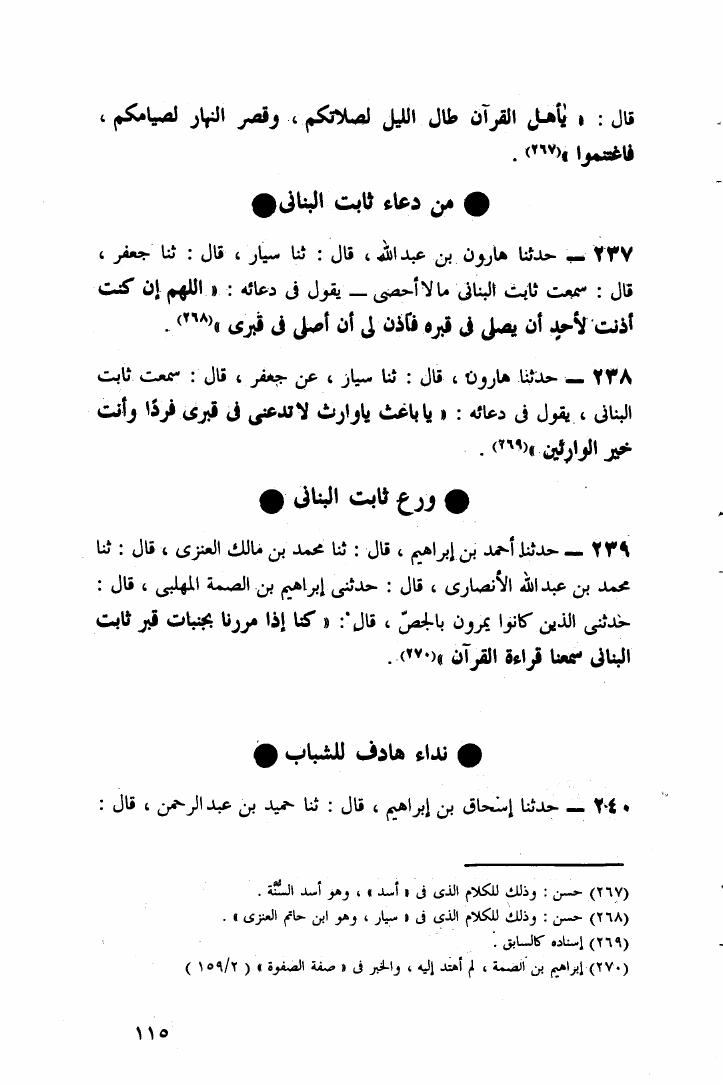 قال : « يٰأهـل القرآن طال الليل لصلاتكم ، وقصر النهار لصيامكم ،
فاغتنموا »(٢٦٧) .
● من دعاء ثابت البنانى ●
٢٣٧ ــ حدثنا هارون بن عبدالله ، قال : ثنا سيار ، قال : ثنا جعفر ،
قال : سمعت ثابت البنانى مالاأحصى ــ يقول فى دعائه : « اللهم إن كنت
أذنت لأحدٍ أن يصلى فى قبره فأذن لى أن أصلى فى قبرى »(٢٦٨) .
٢٣٨ ــ حدثنا هارون ، قال : ثنا سيار ، عن جعفر ، قال : سمعت ثابت
البنانى ، يقول فى دعائه : « ياباعث ياوارث لاتدعنى فى قبرى فردًا وأنت
خير الوارثين »(٢٦٩) .
● ورع ثابت البنانى ●
٢٣٩ ــ حدثنا أحمد بن إبراهيم ، قال : ثنا محمد بن مالك العنزى ، قال : ثنا
محمد بن عبدالله الأنصارى ، قال : حدثنى إبراهيم بن الصمة المهلبى ، قال :
حدثنى الذين كانوا يمرون بالجصّ ، قال : « كنا إذا مررنا بجنبات قبر ثابت
البنانى سمعنا قراءة القرآن »(٢٧٠) .
● نداء هادف للشباب ●
٢٤٠ ــ حدثنا إسحاق بن إبراهيم ، قال : ثنا حميد بن عبدالرحمن ، قال :
(٢٦٧) حسن : وذلك للكلام الذى فى « أسد » ، وهو أسد السُّنَّة .
(٢٦٨) حسن : وذلك للكلام الذى فى « سيار ، وهو ابن حاتم العنزى » .
(٢٦٩) إسناده كالسابق .
(٢٧٠) إبراهيم بن الصمة ، لم أهتد إليه ، والخبر فى « صفة الصفوة » ( ١٥٩/٢ )
١١٥